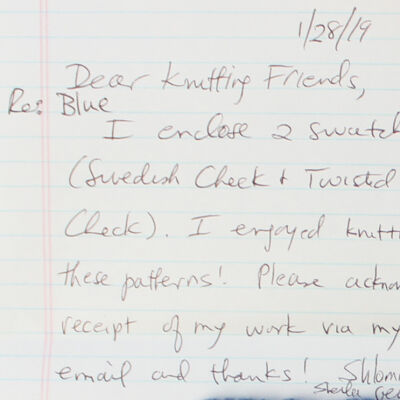 1/28/19
Dear Knitting Friends,
Re: Blue
I enclose 2 swatch
(Swedish Check + Twisted
Check). I enjoyed knitti
these patterns! Please acknow
receipt of my work via my
email and thanks! Shlom
Sheila Ge